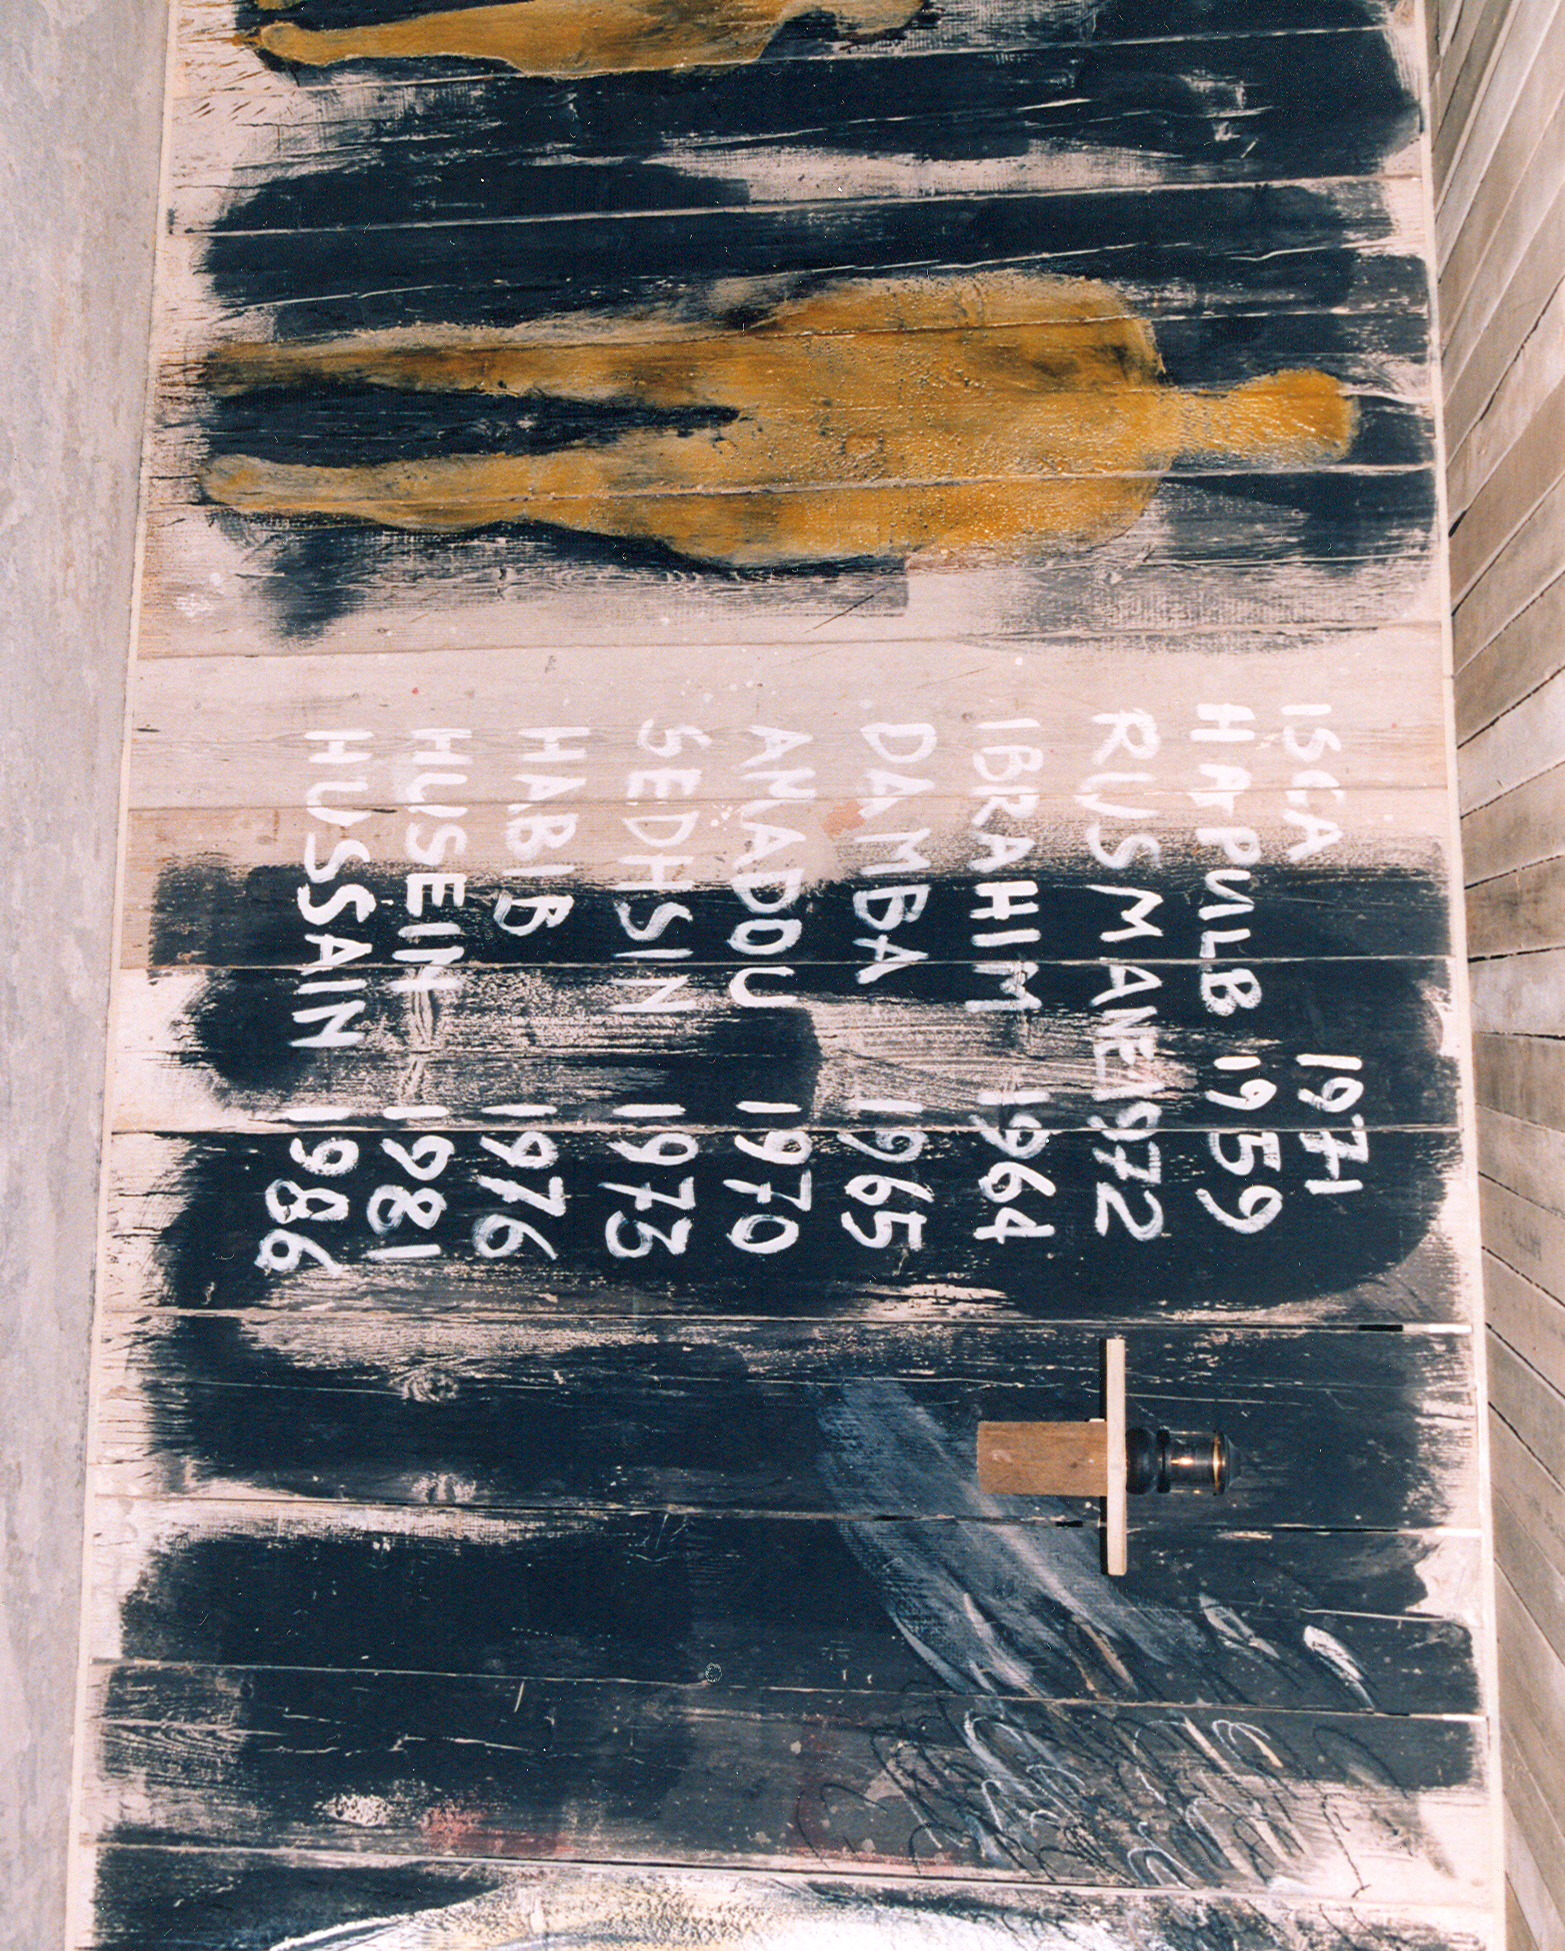 ISCA 1971
HAPULB 1959
RUSMANE 1972
IBRAHIM 1964
DAMBA 1965
AMADOU 1970
SEDHSIN 1973
HABIB 1976
HUSEIN 1981
HUSSAIN 1986